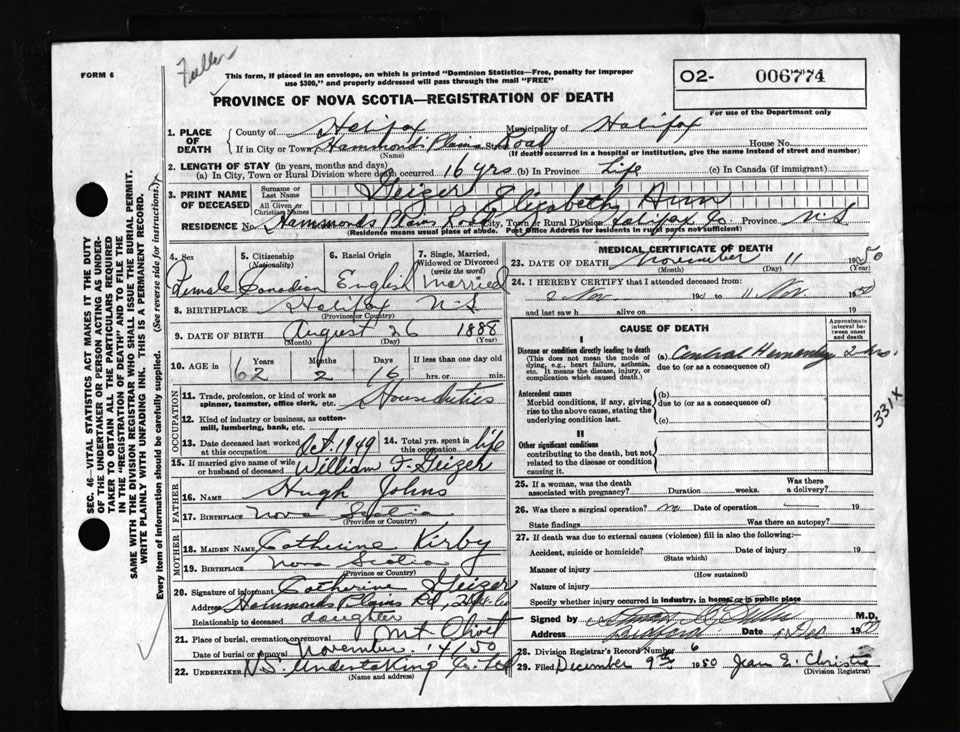 Fuller
FORM 6
This form, if placed in an envelope, on which is printed "Dominion Statistics—Free, penalty for improper
use $300," and properly addressed will pass through the mail "FREE"
O2- 006774
For use of the Department only
PROVINCE OF NOVA SCOTIA—REGISTRATION OF DEATH
1. PLACE OF DEATH
County of Halifax Municipality of Halifax
If in City or Town Hammonds Plains Road House No.
(Name) (If death occurred in a hospital or institution, give the name instead of street and number)
2. LENGTH OF STAY (in years, months and days)
(a) In City, Town or Rural Division where death occurred 16 yrs (b) In Province Life (c) In Canada (if immigrant)
3. PRINT NAME OF DECEASED
Surname or Last Name Geizer
All Given or Christian Names Elizabeth Ann
RESIDENCE No. Hammonds Plains Road City, Town or Rural Division Halifax Co. Province N.S
(Residence means usual place of abode. Post Office Address for residents in rural parts not sufficient)
4. Sex Female
5. Citizenship (Nationality) Canadian
6. Racial Origin English
7. Single, Married, Widowed or Divorced (write the word) Married
8. BIRTHPLACE Halifax N-S
(Province or Country)
9. DATE OF BIRTH August 26 1888
(Month) (Day) (Year)
10. AGE in Years 62 Months 2 Days 16 If less than one day old hrs. or min.
OCCUPATION
11. Trade, profession, or kind of work as spinner, teamster, office clerk, etc. House duties
12. Kind of industry or business, as cotton-mill, lumbering, bank, etc.
13. Date deceased last worked at this occupation Oct. 1949
14. Total yrs. spent in this occupation life
15. If married give name of wife or husband of deceased William F. Geizer
FATHER
16. NAME Hugh Johns
17. BIRTHPLACE Nova Scotia
(Province or Country)
MOTHER
18. MAIDEN NAME Catherine Kirby
19. BIRTHPLACE Nova Scotia
(Province or Country)
20. Signature of informant Catherine Geizer
Address Hammonds Plains Rd, Hfx. Co
Relationship to deceased daughter
21. Place of burial, cremation or removal Mt Olivet
Date of burial or removal November 14/50
22. UNDERTAKER N.S. Undertaking Co. Ltd
(Name and address)
MEDICAL CERTIFICATE OF DEATH
23. DATE OF DEATH November 11 1950
(Month) (Day) (Year)
24. I HEREBY CERTIFY that I attended deceased from:
2 Nov 19 to 11 Nov. 1950
and last saw h alive on 19
CAUSE OF DEATH
Approximate interval between onset and death
I
Disease or condition directly leading to death
(This does not mean the mode of dying, e.g., heart failure, asthenia, etc. It means the disease, injury, or complication which caused death.)
(a) Cerebral Hemorrhage
due to (or as a consequence of)
Antecedent causes
Morbid conditions, if any, giving rise to the above cause, stating the underlying condition last.
(b)
due to (or as a consequence of)
(c)
331X
II
Other significant conditions
contributing to the death, but not related to the disease or condition causing it.
25. If a woman, was the death associated with pregnancy? Duration weeks. Was there a delivery?
26. Was there a surgical operation? no Date of operation 19
State findings Was there an autopsy?
27. If death was due to external causes (violence) fill in also the following:—
Accident, suicide or homicide? Date of injury 19
(State which)
Manner of injury
(How sustained)
Nature of injury
Specify whether injury occurred in industry, in home, or in public place
Signed by M.D.
Address Bedford Date Dec 1950
28. Division Registrar's Record Number 6
29. Filed December 9th 1950 Jean E. Christie
(Division Registrar)
SEC. 46—VITAL STATISTICS ACT MAKES IT THE DUTY
OF THE UNDERTAKER OR PERSON ACTING AS UNDER-
TAKER TO OBTAIN ALL THE PARTICULARS REQUIRED
IN THE "REGISTRATION OF DEATH" AND TO FILE THE
SAME WITH THE DIVISION REGISTRAR WHO SHALL ISSUE THE BURIAL PERMIT.
WRITE PLAINLY WITH UNFADING INK. THIS IS A PERMANENT RECORD.
Every item of information should be carefully supplied. (See reverse side for instructions.)